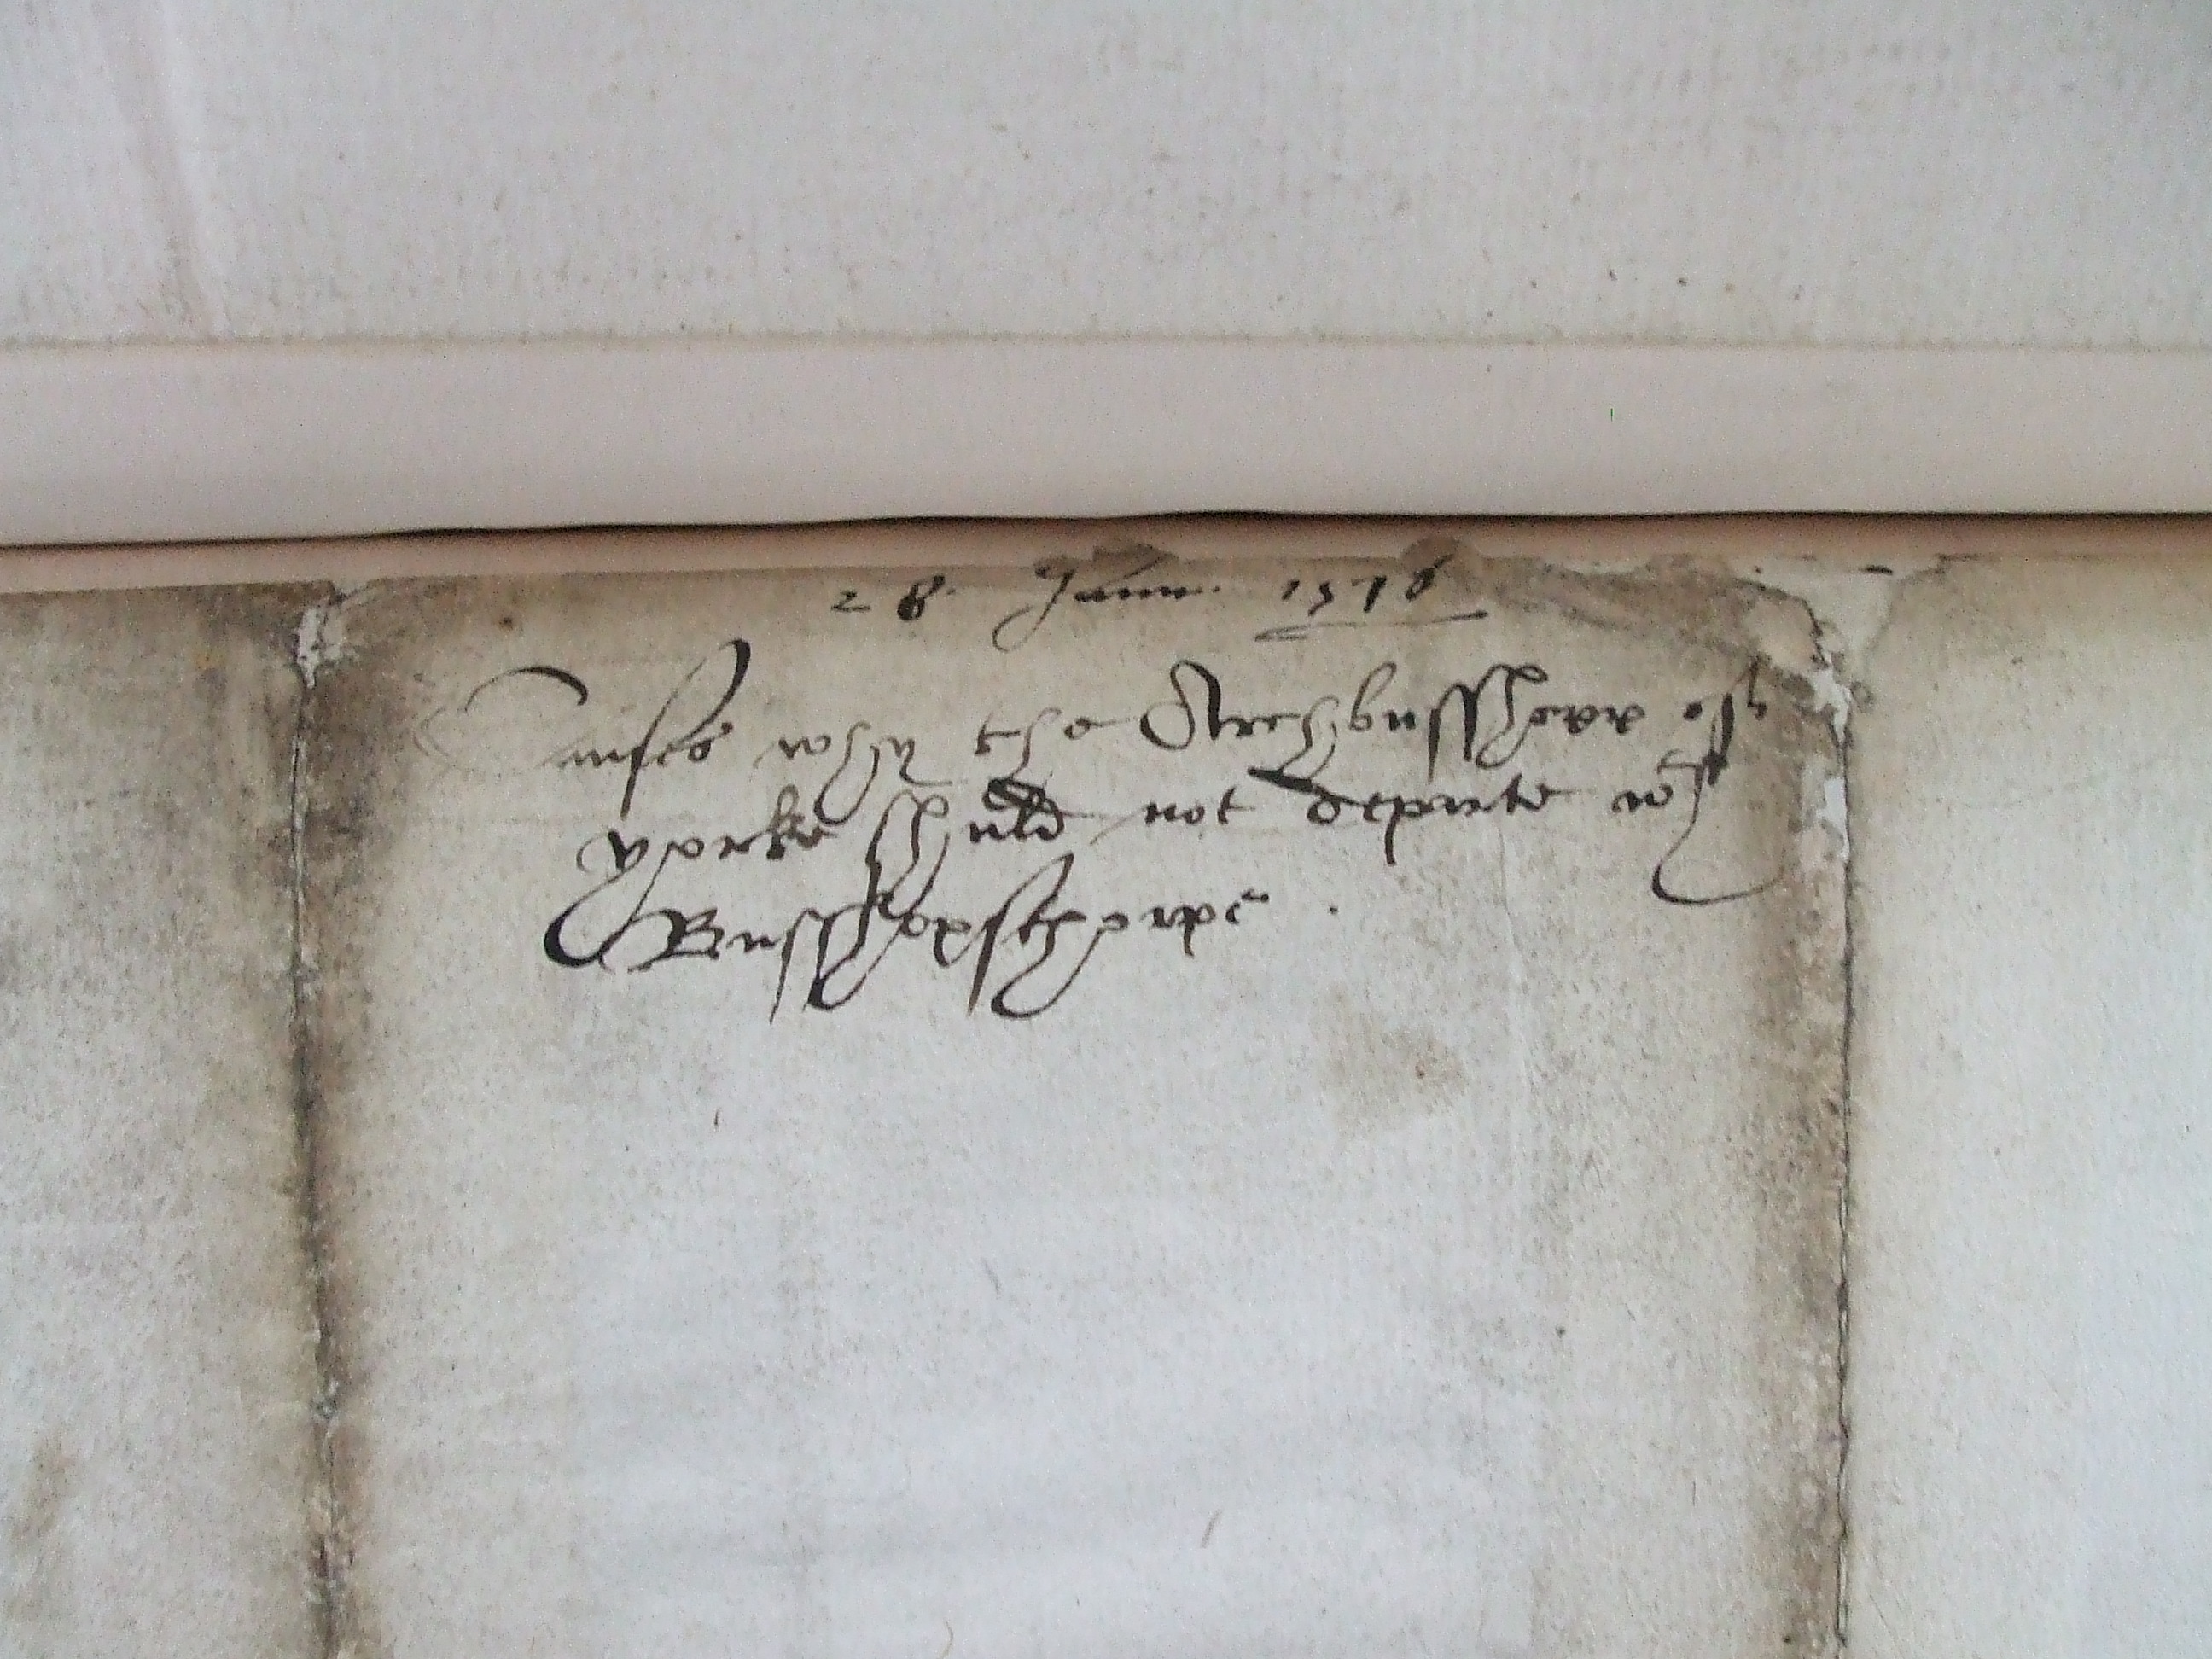 28. Janu. 1576
Causes why the Archbusshopp of
yorke shuld not depute wth
Busshopsthorpe .